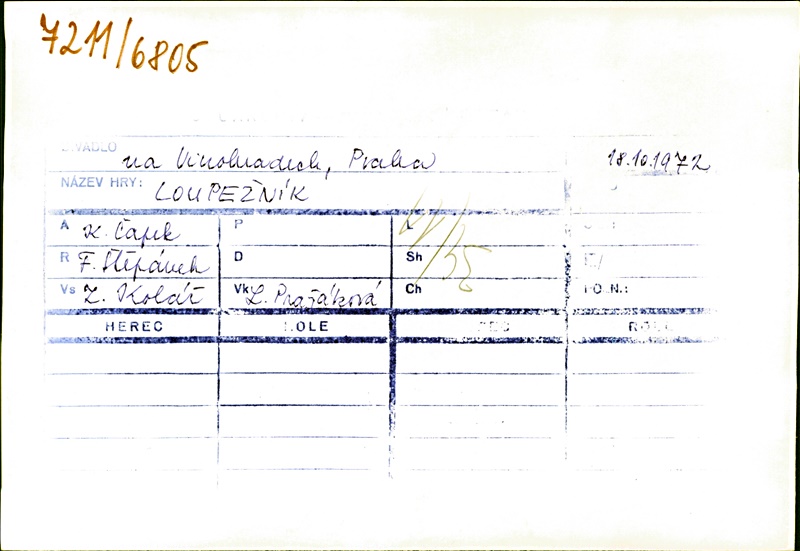 7211/6805
DIVADLO na Vinohradech, Praha 18.10.1972
NÁZEV HRY: LOUPEŽNÍK
A K. Čapek P
R F. Štěpánek D Sh
Vs Z. Kolář Vk L. Pražáková Ch
HEREC ROLE